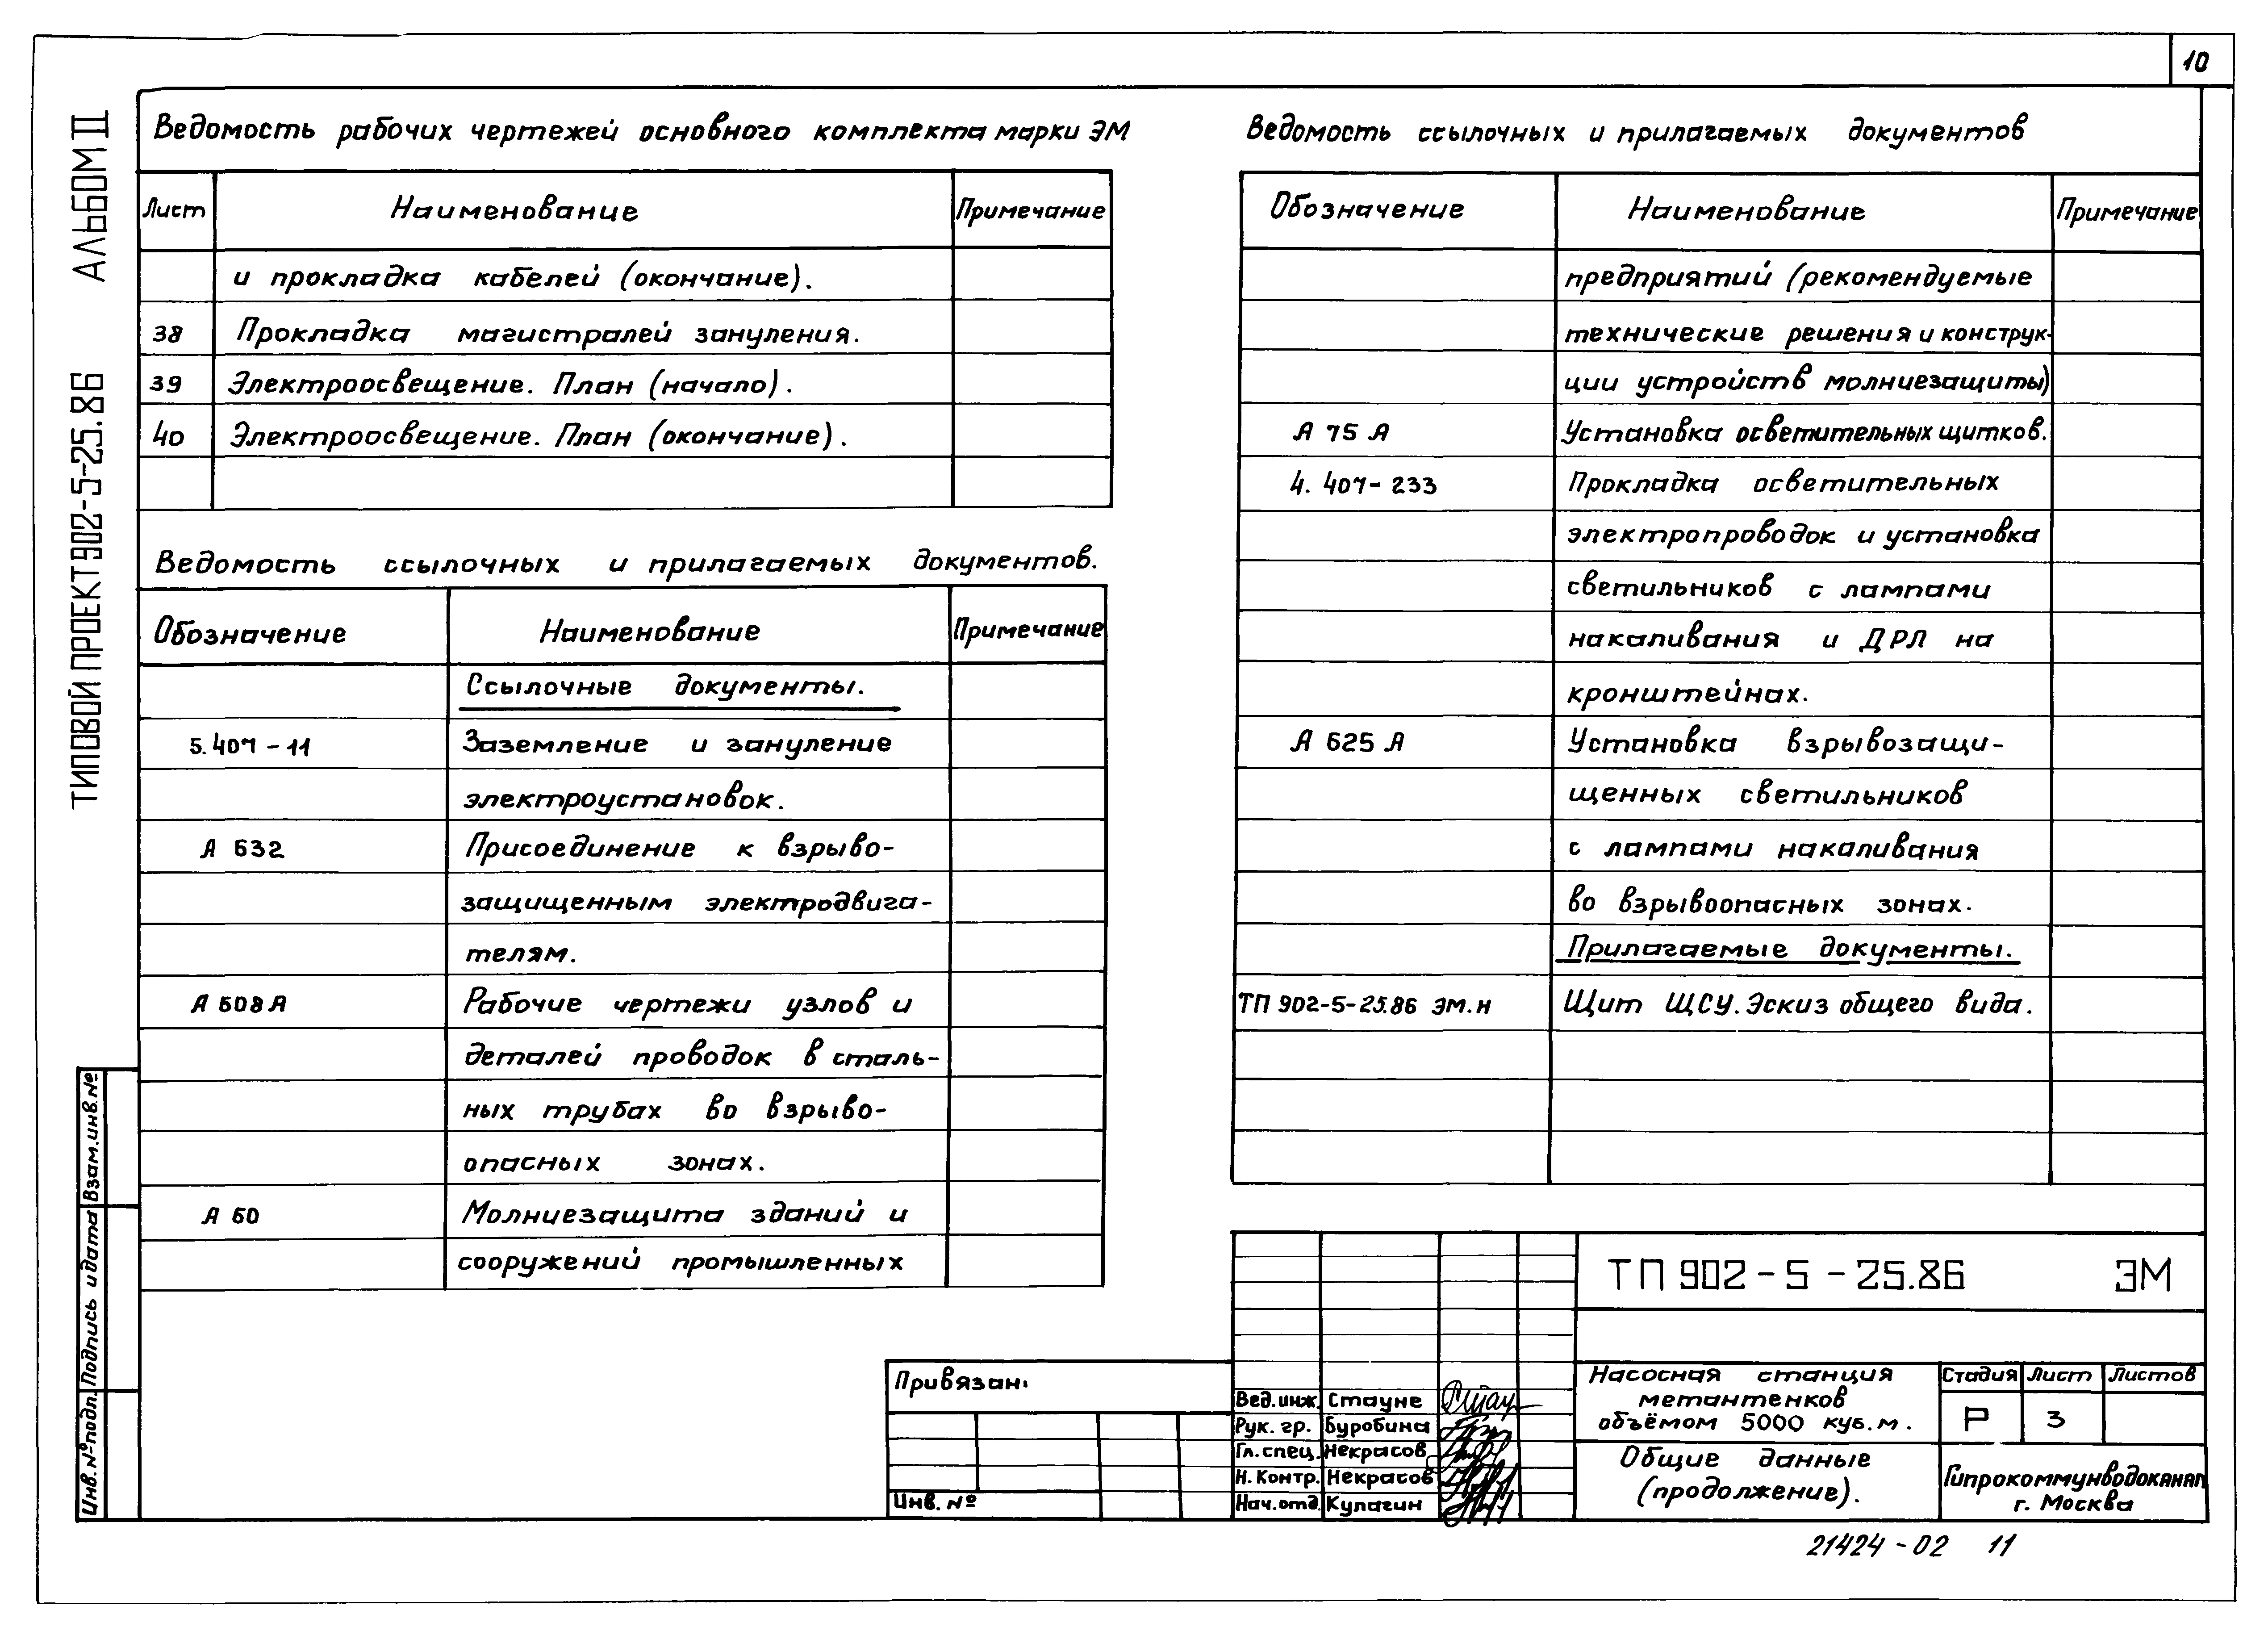 10
АЛЬБОМ II
ТИПОВОЙ ПРОЕКТ 902-5-25.86
Ведомость рабочих чертежей основного комплекта марки ЭМ
Лист Наименование Примечание
и прокладка кабелей (окончание).
38 Прокладка магистралей зануления.
39 Электроосвещение. План (начало).
40 Электроосвещение. План (окончание).
Ведомость ссылочных и прилагаемых документов.
Обозначение Наименование Примечание
Ссылочные документы.
5.407-11 Заземление и зануление
электроустановок.
А 632 Присоединение к взрыво-
защищенным электродвига-
телям.
А 608 А Рабочие чертежи узлов и
деталей проводок в сталь-
ных трубах во взрыво-
опасных зонах.
А 60 Молниезащита зданий и
сооружений промышленных
Ведомость ссылочных и прилагаемых документов
Обозначение Наименование Примечание
предприятий (рекомендуемые
технические решения и конструк-
ции устройств молниезащиты)
А 75 А Установка осветительных щитков.
4.407-233 Прокладка осветительных
электропроводок и установка
светильников с лампами
накаливания и ДРЛ на
кронштейнах.
А 625 А Установка взрывозащи-
щенных светильников
с лампами накаливания
во взрывоопасных зонах.
Прилагаемые документы.
ТП 902-5-25.86 ЭМ.Н Щит ЩСУ. Эскиз общего вида.
Взам.инв.№
Подпись и дата
Инв.№подл.
Привязан:
Инв. №
Вед.инж. Стауне
Рук. гр. Буробина
Гл.спец. Некрасов
Н. Контр. Некрасов
Нач.отд. Кулагин
ТП 902-5-25.86 ЭМ
Насосная станция
метантенков
объёмом 5000 куб.м.
Стадия Лист Листов
Р 3
Общие данные
(продолжение).
Гипрокоммунводоканал
г. Москва
21424-02 11